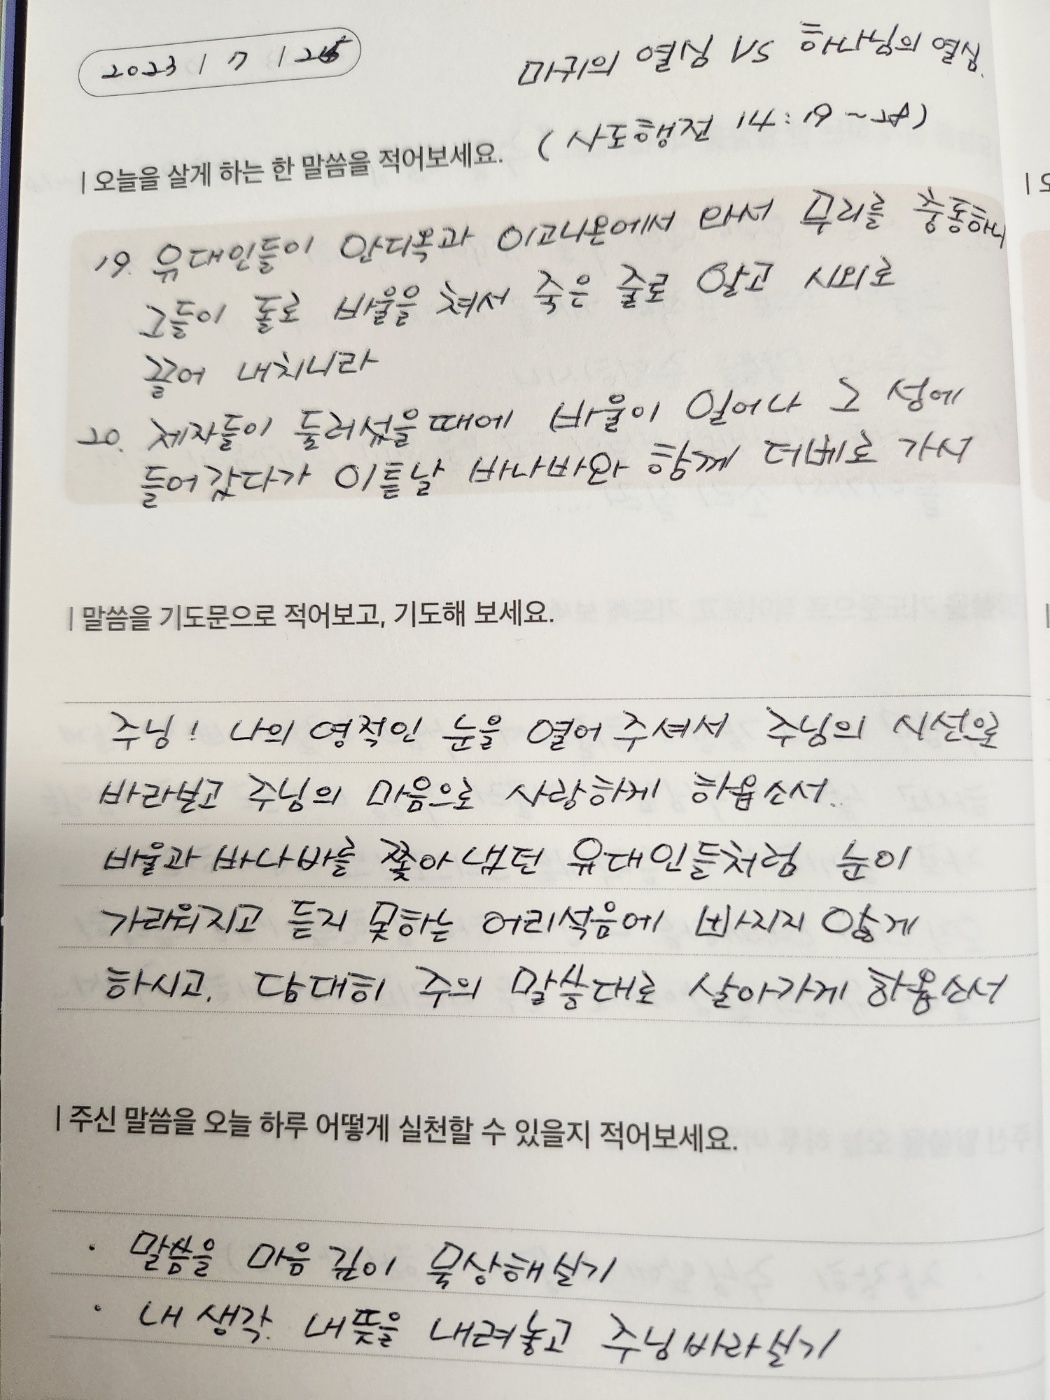 2023 / 7 / 25
마귀의 열심 VS 하나님의 열심.
(사도행전 14:19~20)
| 오늘을 살게 하는 한 말씀을 적어보세요.
19. 유대인들이 안디옥과 이고니온에서 와서 무리를 충동하니
그들이 돌로 바울을 쳐서 죽은 줄로 알고 시외로
끌어 내치니라
20. 제자들이 둘러섰을 때에 바울이 일어나 그 성에
들어갔다가 이튿날 바나바와 함께 더베로 가서
| 말씀을 기도문으로 적어보고, 기도해 보세요.
주님! 나의 영적인 눈을 열어 주셔서 주님의 시선으로
바라보고 주님의 마음으로 사랑하게 하옵소서..
바울과 바나바를 쫓아 냈던 유대인들처럼 눈이
가리워지고 듣지 못하는 어리석음에 빠지지 않게
하시고, 담대히 주의 말씀대로 살아가게 하옵소서
| 주신 말씀을 오늘 하루 어떻게 실천할 수 있을지 적어보세요.
· 말씀을 마음 깊이 묵상해보기
· 내 생각. 내 뜻을 내려놓고 주님바라보기